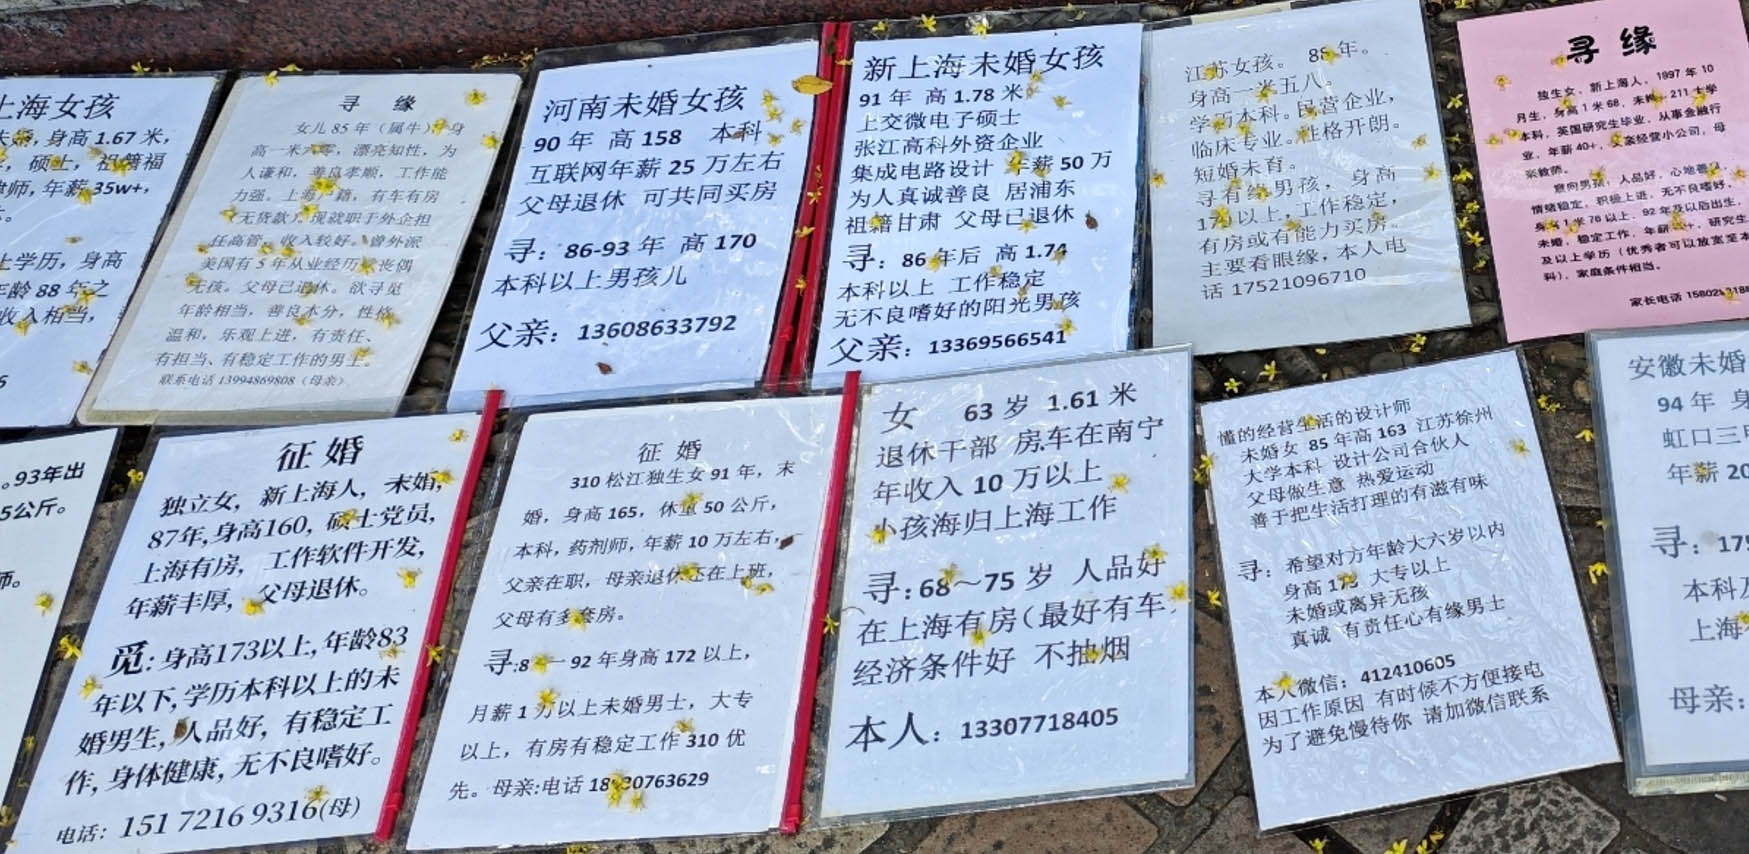 上海女孩
未婚，身高1.67米，
硕士，祖籍福
律师，年薪35w+，
上学历，身高
年龄88年之
收入相当，
寻 缘
女儿85年（属牛），身
高一米六零，漂亮知性，为
人谦和，善良孝顺，工作能
力强。上海户籍，有车有房
（无贷款）。现就职于外企担
任高管，收入较好。曾外派
美国有5年从业经历，丧偶
无孩。父母已退休。欲寻觅
年龄相当，善良本分，性格
温和，乐观上进，有责任、
有担当、有稳定工作的男士。
联系电话13994869808（母亲）
河南未婚女孩
90年 高158 本科
互联网年薪25万左右
父母退休 可共同买房
寻：86-93年 高170
本科以上男孩儿
父亲：13608633792
新上海未婚女孩
91年 高1.78米
上交微电子硕士
张江高科外资企业
集成电路设计 年薪50万
为人真诚善良 居浦东
祖籍甘肃 父母已退休
寻：86年后 高1.74
本科以上 工作稳定
无不良嗜好的阳光男孩
父亲：13369566541
江苏女孩。 年。
身高一米五八。
学历本科。民营企业，
临床专业。性格开朗。
短婚未育。
寻有缘男孩，身高
以上，工作稳定，
有房或有能力买房。
主要看眼缘，本人电
话17521096710
寻 缘
独生女，新上海人，1997年10
月生，身高1米68，未婚，211大学
本科，英国研究生毕业，从事金融行
业，年薪40+，父亲经营小公司，母
亲教师。
意向男孩，人品好，心地善
情绪稳定，积极上进，无不良嗜好，
身高1米76以上，92年及以后出生，
未婚，稳定工作，年薪 ，研究生
及以上学历（优秀者可以放宽至本
科），家庭条件相当。
家长电话
。93年出
5公斤。
师。
征 婚
独立女，新上海人，未婚，
87年，身高160，硕士党员，
上海有房，工作软件开发，
年薪丰厚，父母退休。
觅：身高173以上，年龄83
年以下，学历本科以上的未
婚男生，人品好，有稳定工
作，身体健康，无不良嗜好。
电话：151 7216 9316（母）
征 婚
310松江独生女91年，未
婚，身高165，体重50公斤，
本科，药剂师，年薪10万左右，
父亲在职，母亲退休还在上班，
父母有多套房。
寻：8 — 92年身高172以上，
月薪1万以上未婚男士，大专
以上，有房有稳定工作310优
先。母亲:电话
女 63岁 1.61米
退休干部 房车在南宁
年收入10万以上
小孩海归上海工作
寻：68～75岁 人品好
在上海有房（最好有车，
经济条件好 不抽烟
本人：13307718405
懂的经营生活的设计师
未婚女 85年高163 江苏徐州
大学本科 设计公司合伙人
父母做生意 热爱运动
善于把生活打理的有滋有味
寻：希望对方年龄大六岁以内
身高 大专以上
未婚或离异无孩
真诚 有责任心有缘男士
本人微信：412410605
因工作原因 有时候不方便接电
为了避免慢待你 请加微信联系
安徽未婚
94年 身
虹口三
年薪20
寻：179
本科及
上海
母亲：